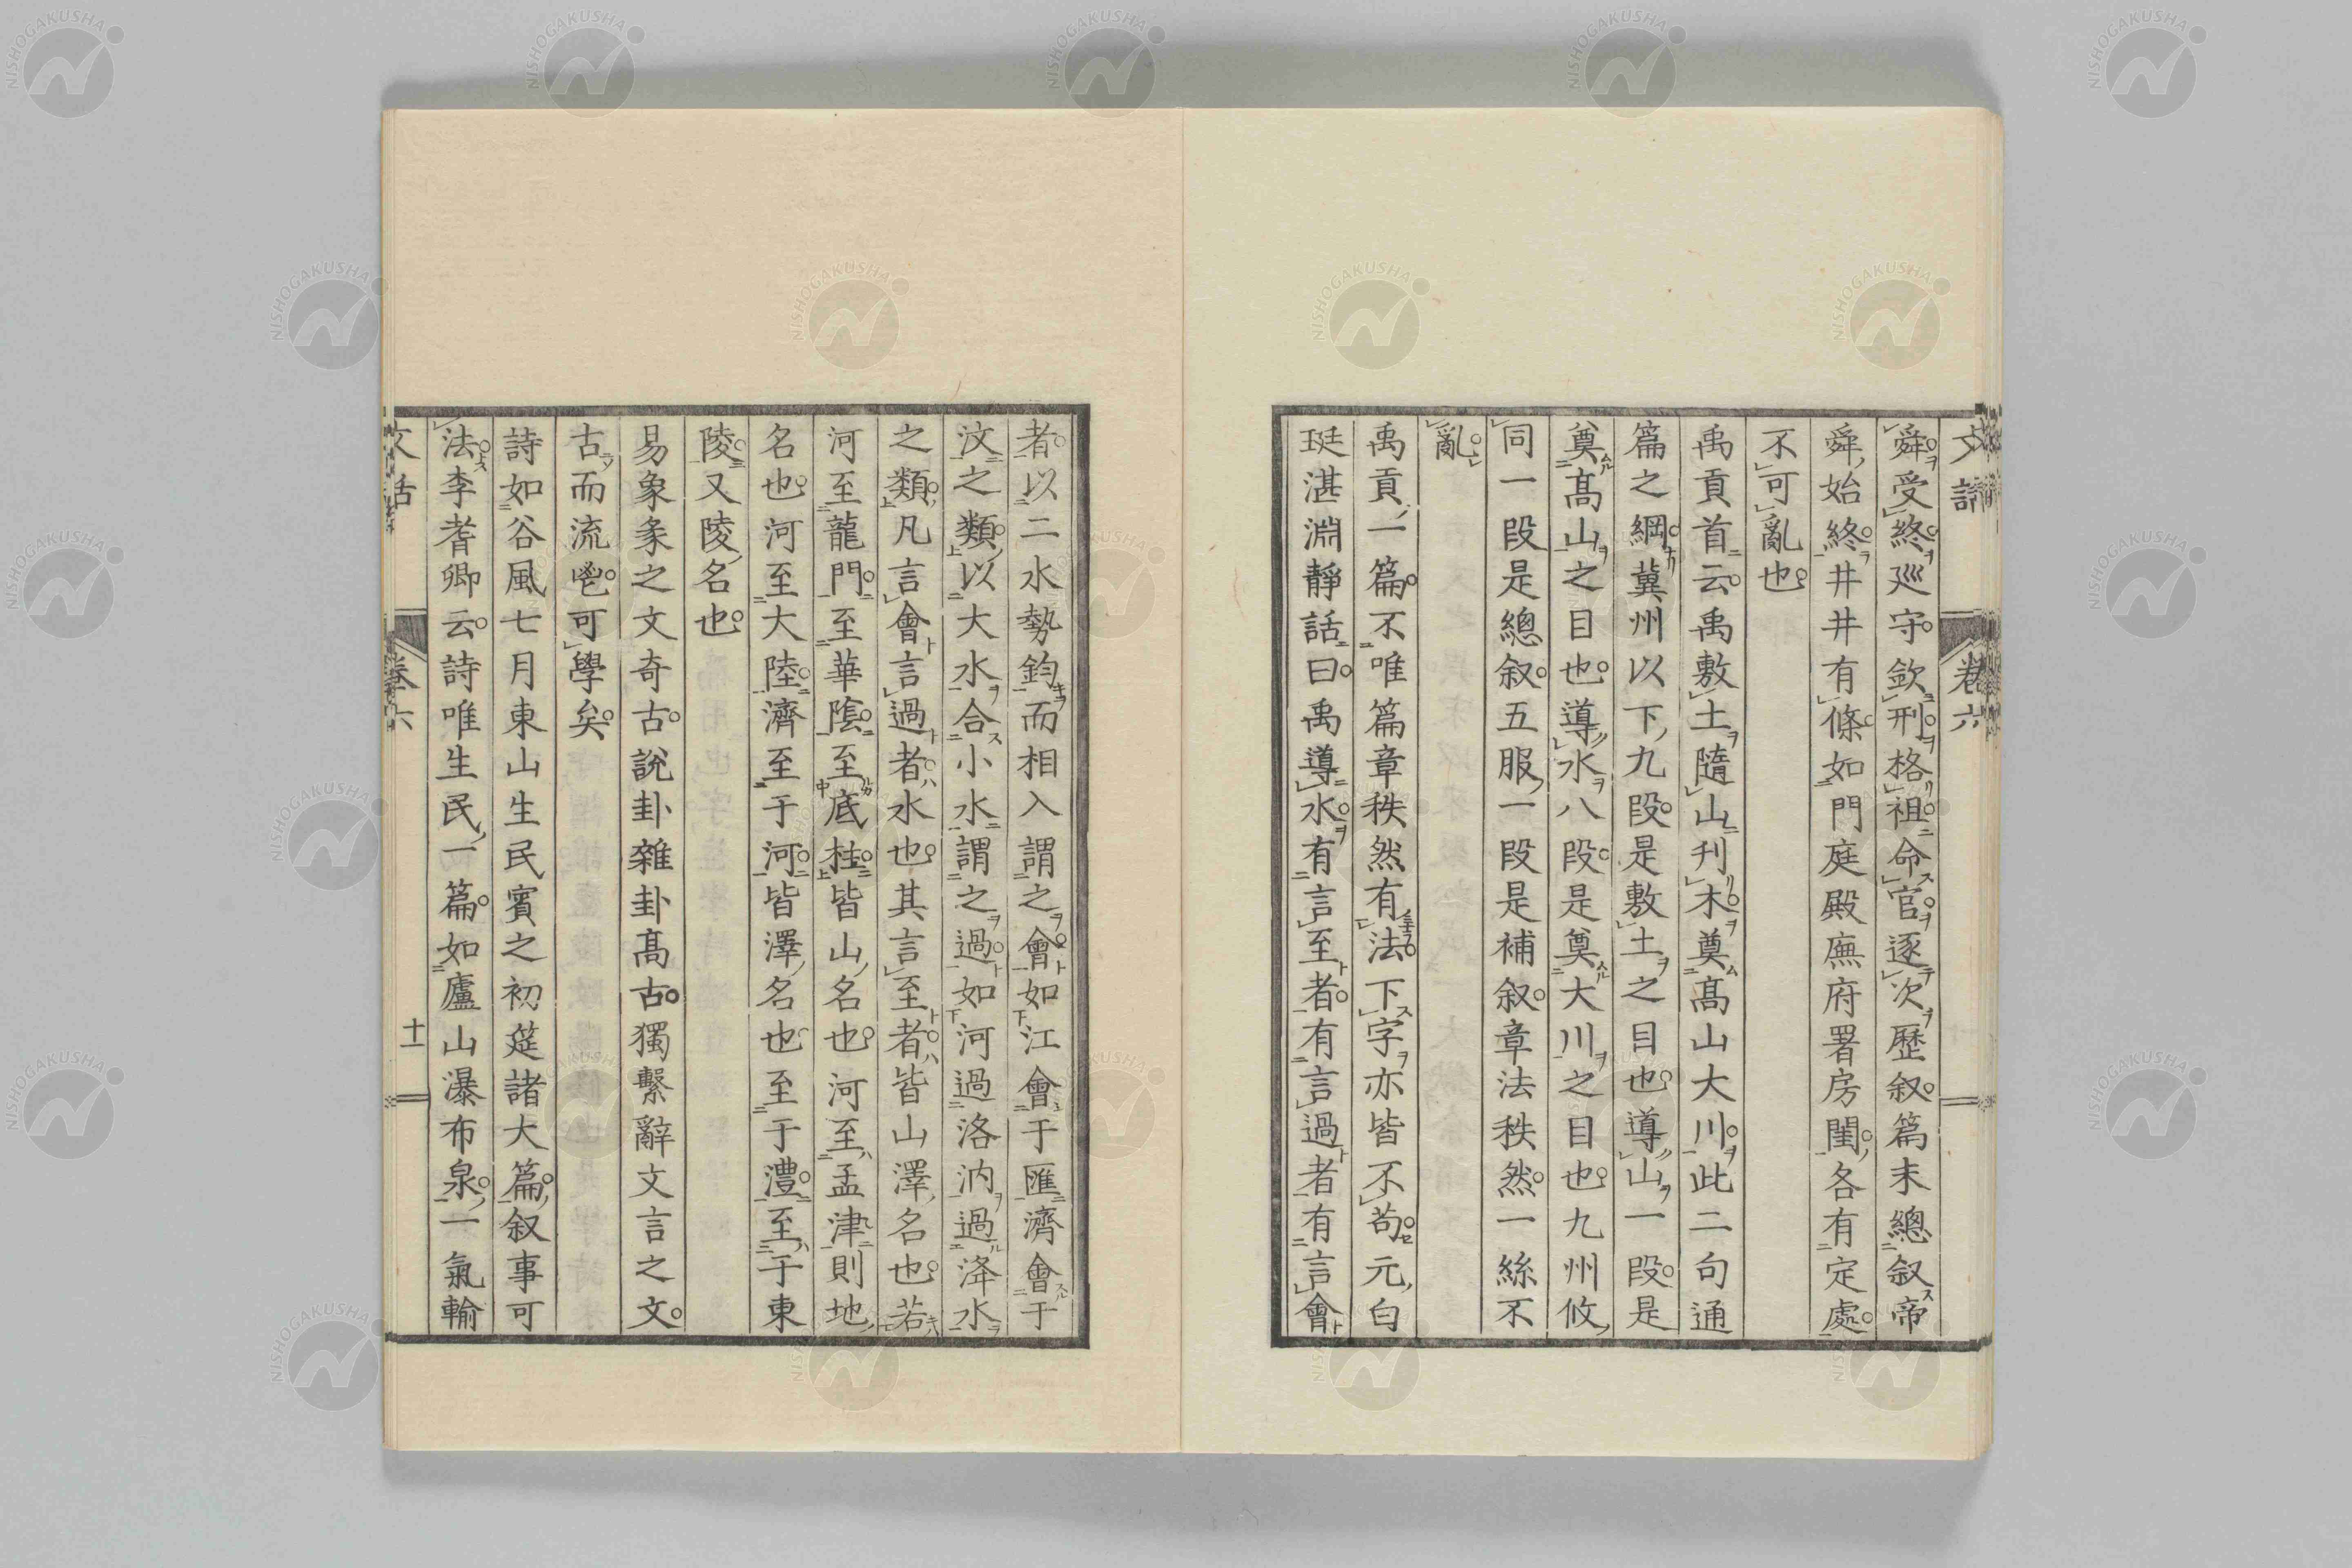 文話 卷六
舜受終巡守欽刑格祖命官逐次歷叙篇末總叙帝
舜始終井井有條如門庭殿廡府署房閨各有定處
不可亂也
禹貢首云禹敷土隨山刋木奠髙山大川此二句通
篇之綱冀州以下九段是敷土之目也導山一段是
奠髙山之目也導水八段是奠大川之目也九州攸
同一段是總叙五服一段是補叙章法秩然一絲不
亂
禹貢一篇不唯篇章秩然有法下字亦皆不苟元白
珽湛淵靜話曰禹導水有言至者有言過者有言會
者以二水勢鈞而相入謂之會如江會于匯濟會于
汶之類以大水合小水謂之過如河過洛汭過洚水
之類凡言會言過者水也其言至者皆山澤名也若
河至龍門至華陰至底柱皆山名也河至孟津則地
名也河至大陸濟至于河皆澤名也至于澧至于東
陵又陵名也
易象彖之文奇古說卦雜卦髙古獨繫辭文言之文
古而流鬯可學矣
詩如谷風七月東山生民賓之初筵諸大篇叙事可
法李耆卿云詩唯生民一篇如廬山瀑布泉一氣輸
文話 卷六 十一
NISHOGAKUSHA